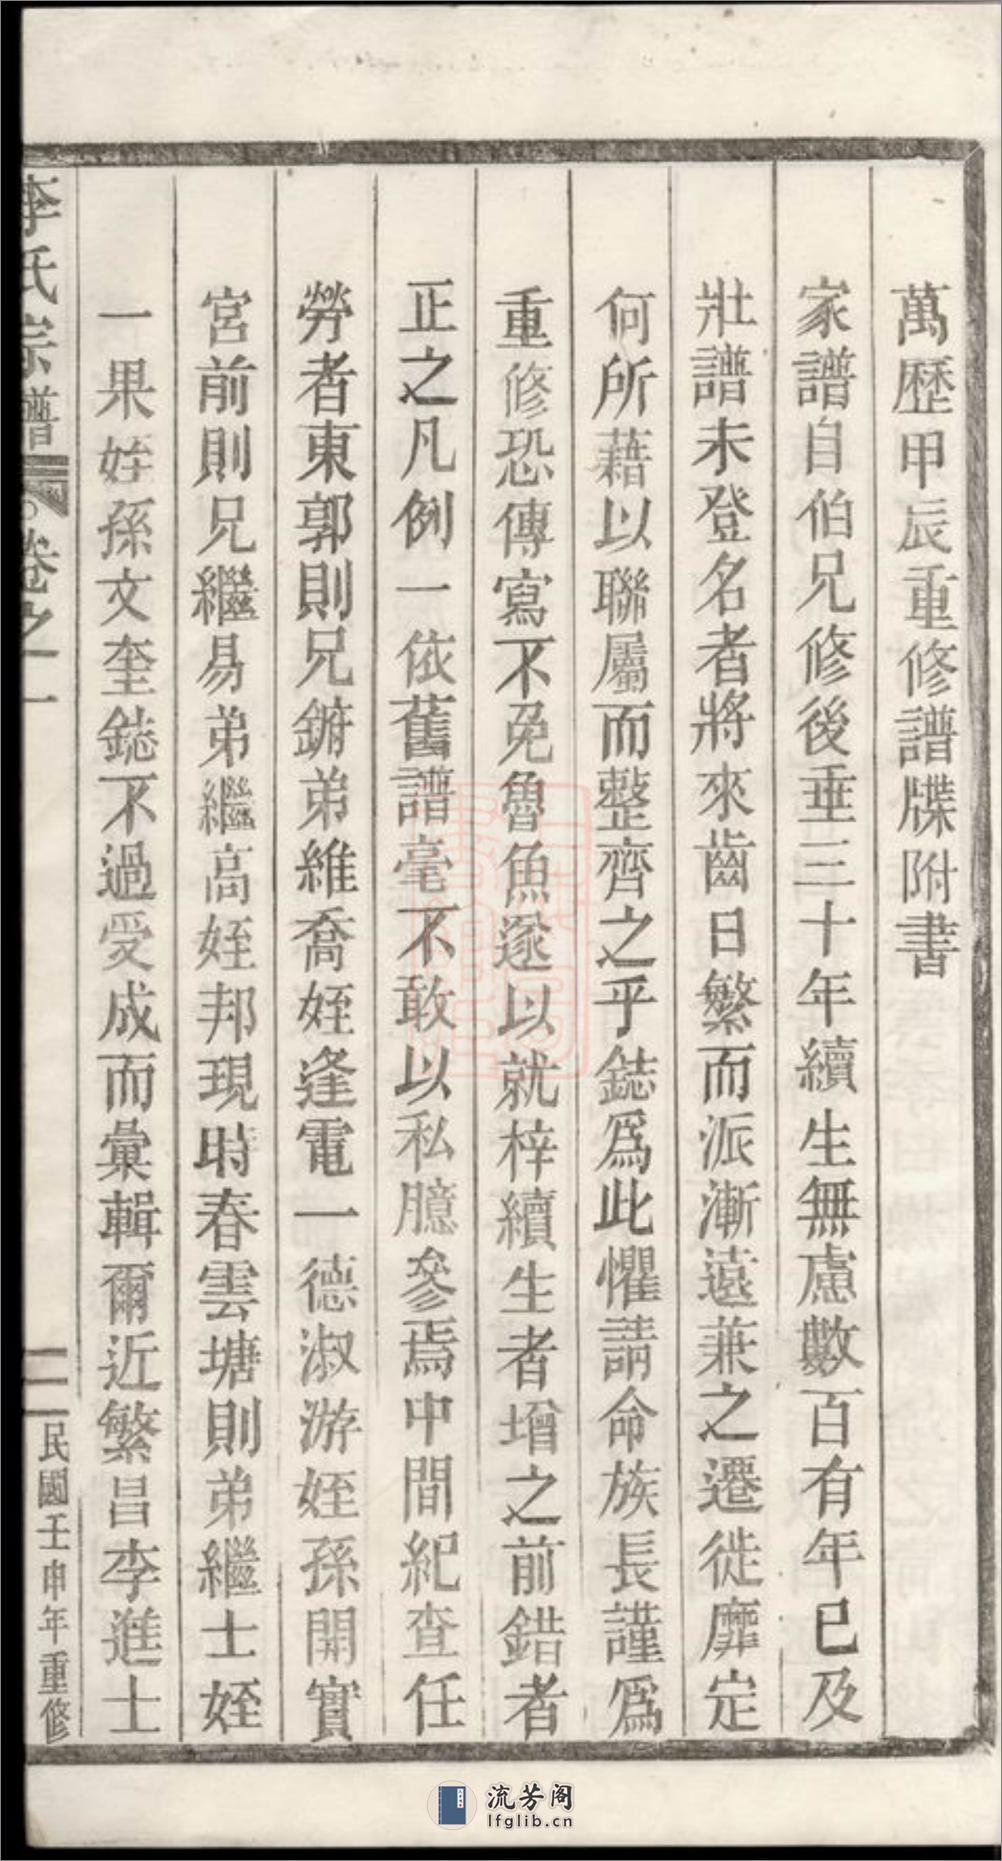 萬歷甲辰重修譜牒附書
家譜自伯兄修後垂三十年續生無慮數百有年已及
壯譜未登名者將來齒日繁而派漸遠兼之遷徙靡定
何所藉以聯屬而整齊之乎鋕爲此懼請命族長謹爲
重修恐傳寫不免魯魚遂以就梓續生者增之前錯者
正之凡例一依舊譜毫不敢以私臆參焉中間紀查任
勞者東郭則兄鏞弟維喬姪逢電一德淑游姪孫開實
宮前則兄繼易弟繼高姪邦現時春雲塘則弟繼士姪
一果姪孫文奎鋕不過受成而彙輯爾近繁昌李進士
李氏宗譜 卷之一 二 民國壬申年重修
流芳阁
lfglib.cn